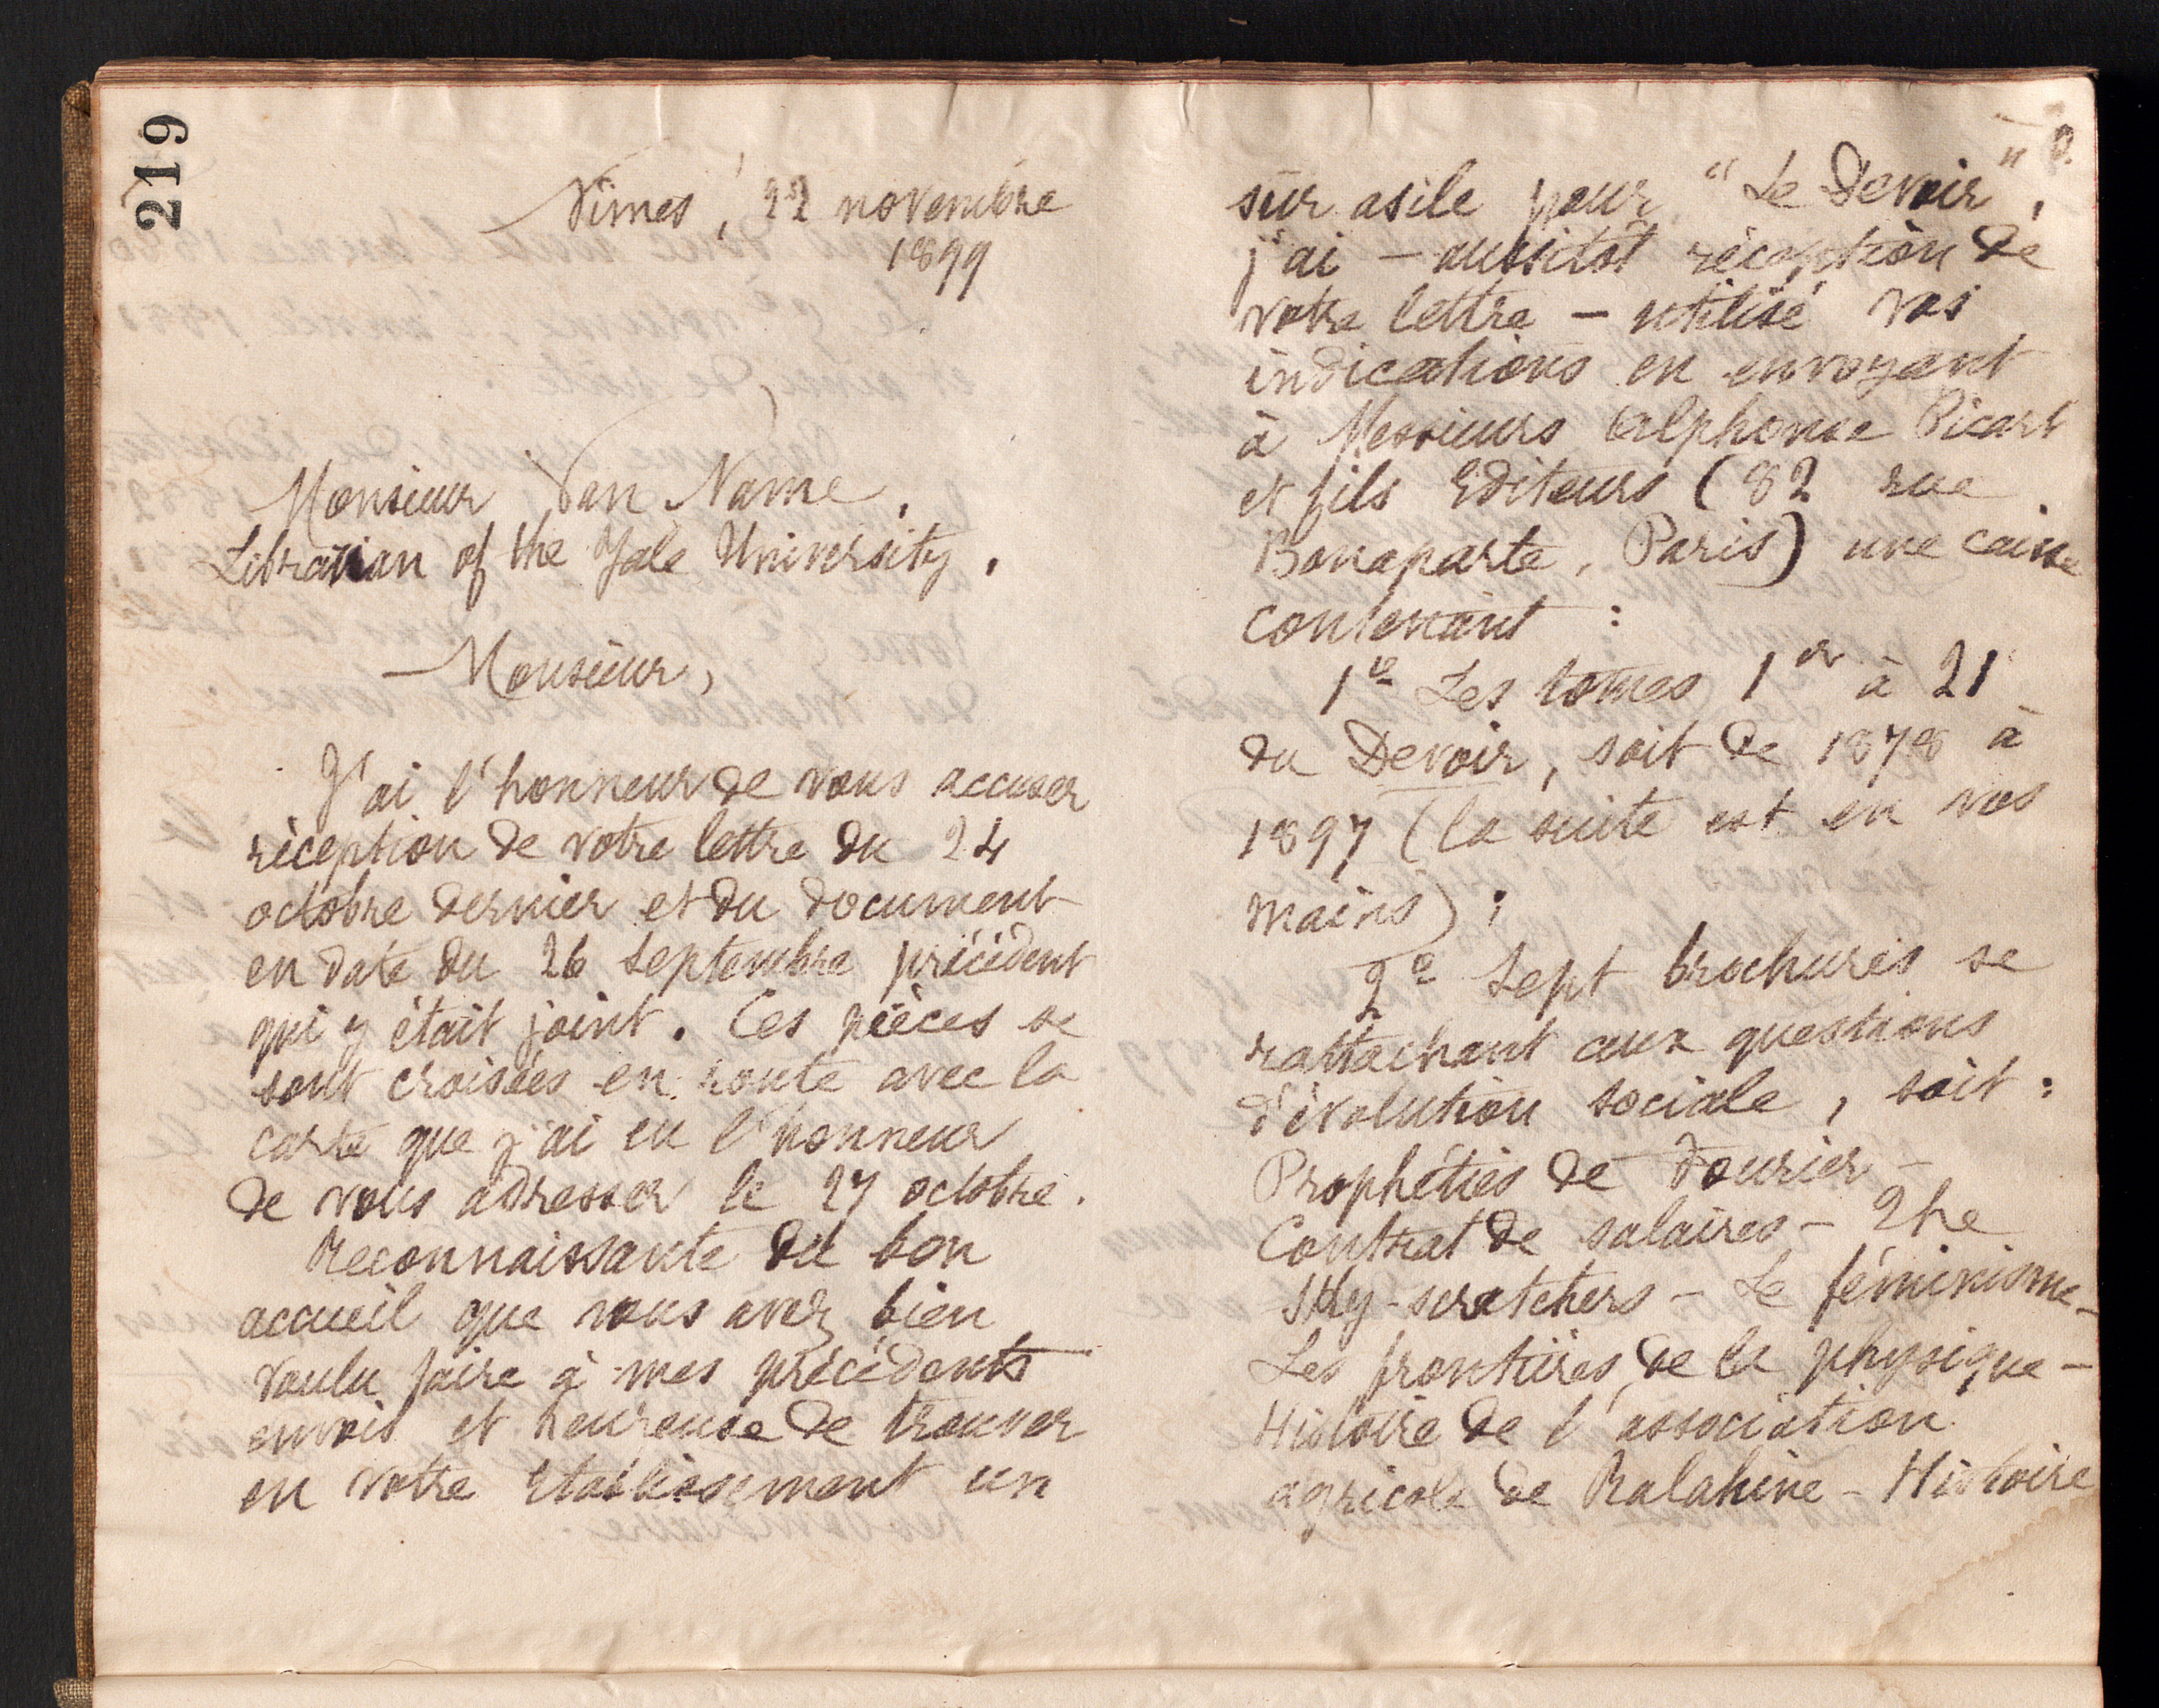 219
Nimes, 22 novembre
1899
Monsieur Van Name,
Librarian of the Yale University.
Monsieur,
J'ai l'honneur de vous accuser
réception de votre lettre du 24
octobre dernier et du document
en date du 26 septembre précédent
qui y était joint. Ces pièces se
sont croisées en route avec la
carte que j'ai eu l'honneur
de vous adresser le 27 octobre.
Reconnaissante du bon
accueil que vous avez bien
voulu faire à mes précédents
envois et heureuse de trouver
en votre Etablissement un
2
sûr asile pour "Le Devoir",
j'ai – aussitôt réception de
votre lettre – utilisé vos
indications en envoyant
à Messieurs Alphonse Picart
et fils Editeurs (82 rue
Bonaparte, Paris) une caisse
contenant :
1º Les tomes 1er à 21
du Devoir, soit de 1878 à
1897 (la suite est en vos
mains) ;
2º Sept brochures se
rattachant aux questions
d'évolution sociale, soit :
Prophéties de Fourier –
Contrat de salaires – The
Sky-scratchers – Le féminisme –
Les frontières de la physique –
Histoire de l'association
agricole de Ralahine – Histoire